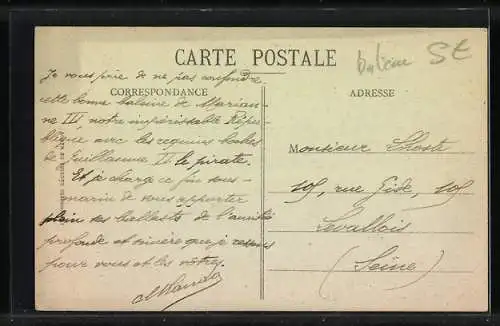 CARTE POSTALE
baleine
CORRESPONDANCE
ADRESSE
Je vous prie de ne pas confondre
cette bonne baleine de Marian-
ne III, notre impérissable Répu-
blique avec les requins boches
de Guillaume II le pirate.
Et je charge ce fin sous-
marin de vous apporter
plein ses ballasts de l'amitié
profonde et sincère que je
pour vous et les vôtres.
Monsieur Lhoste
105, rue Gide, 105
Levallois
(Seine)